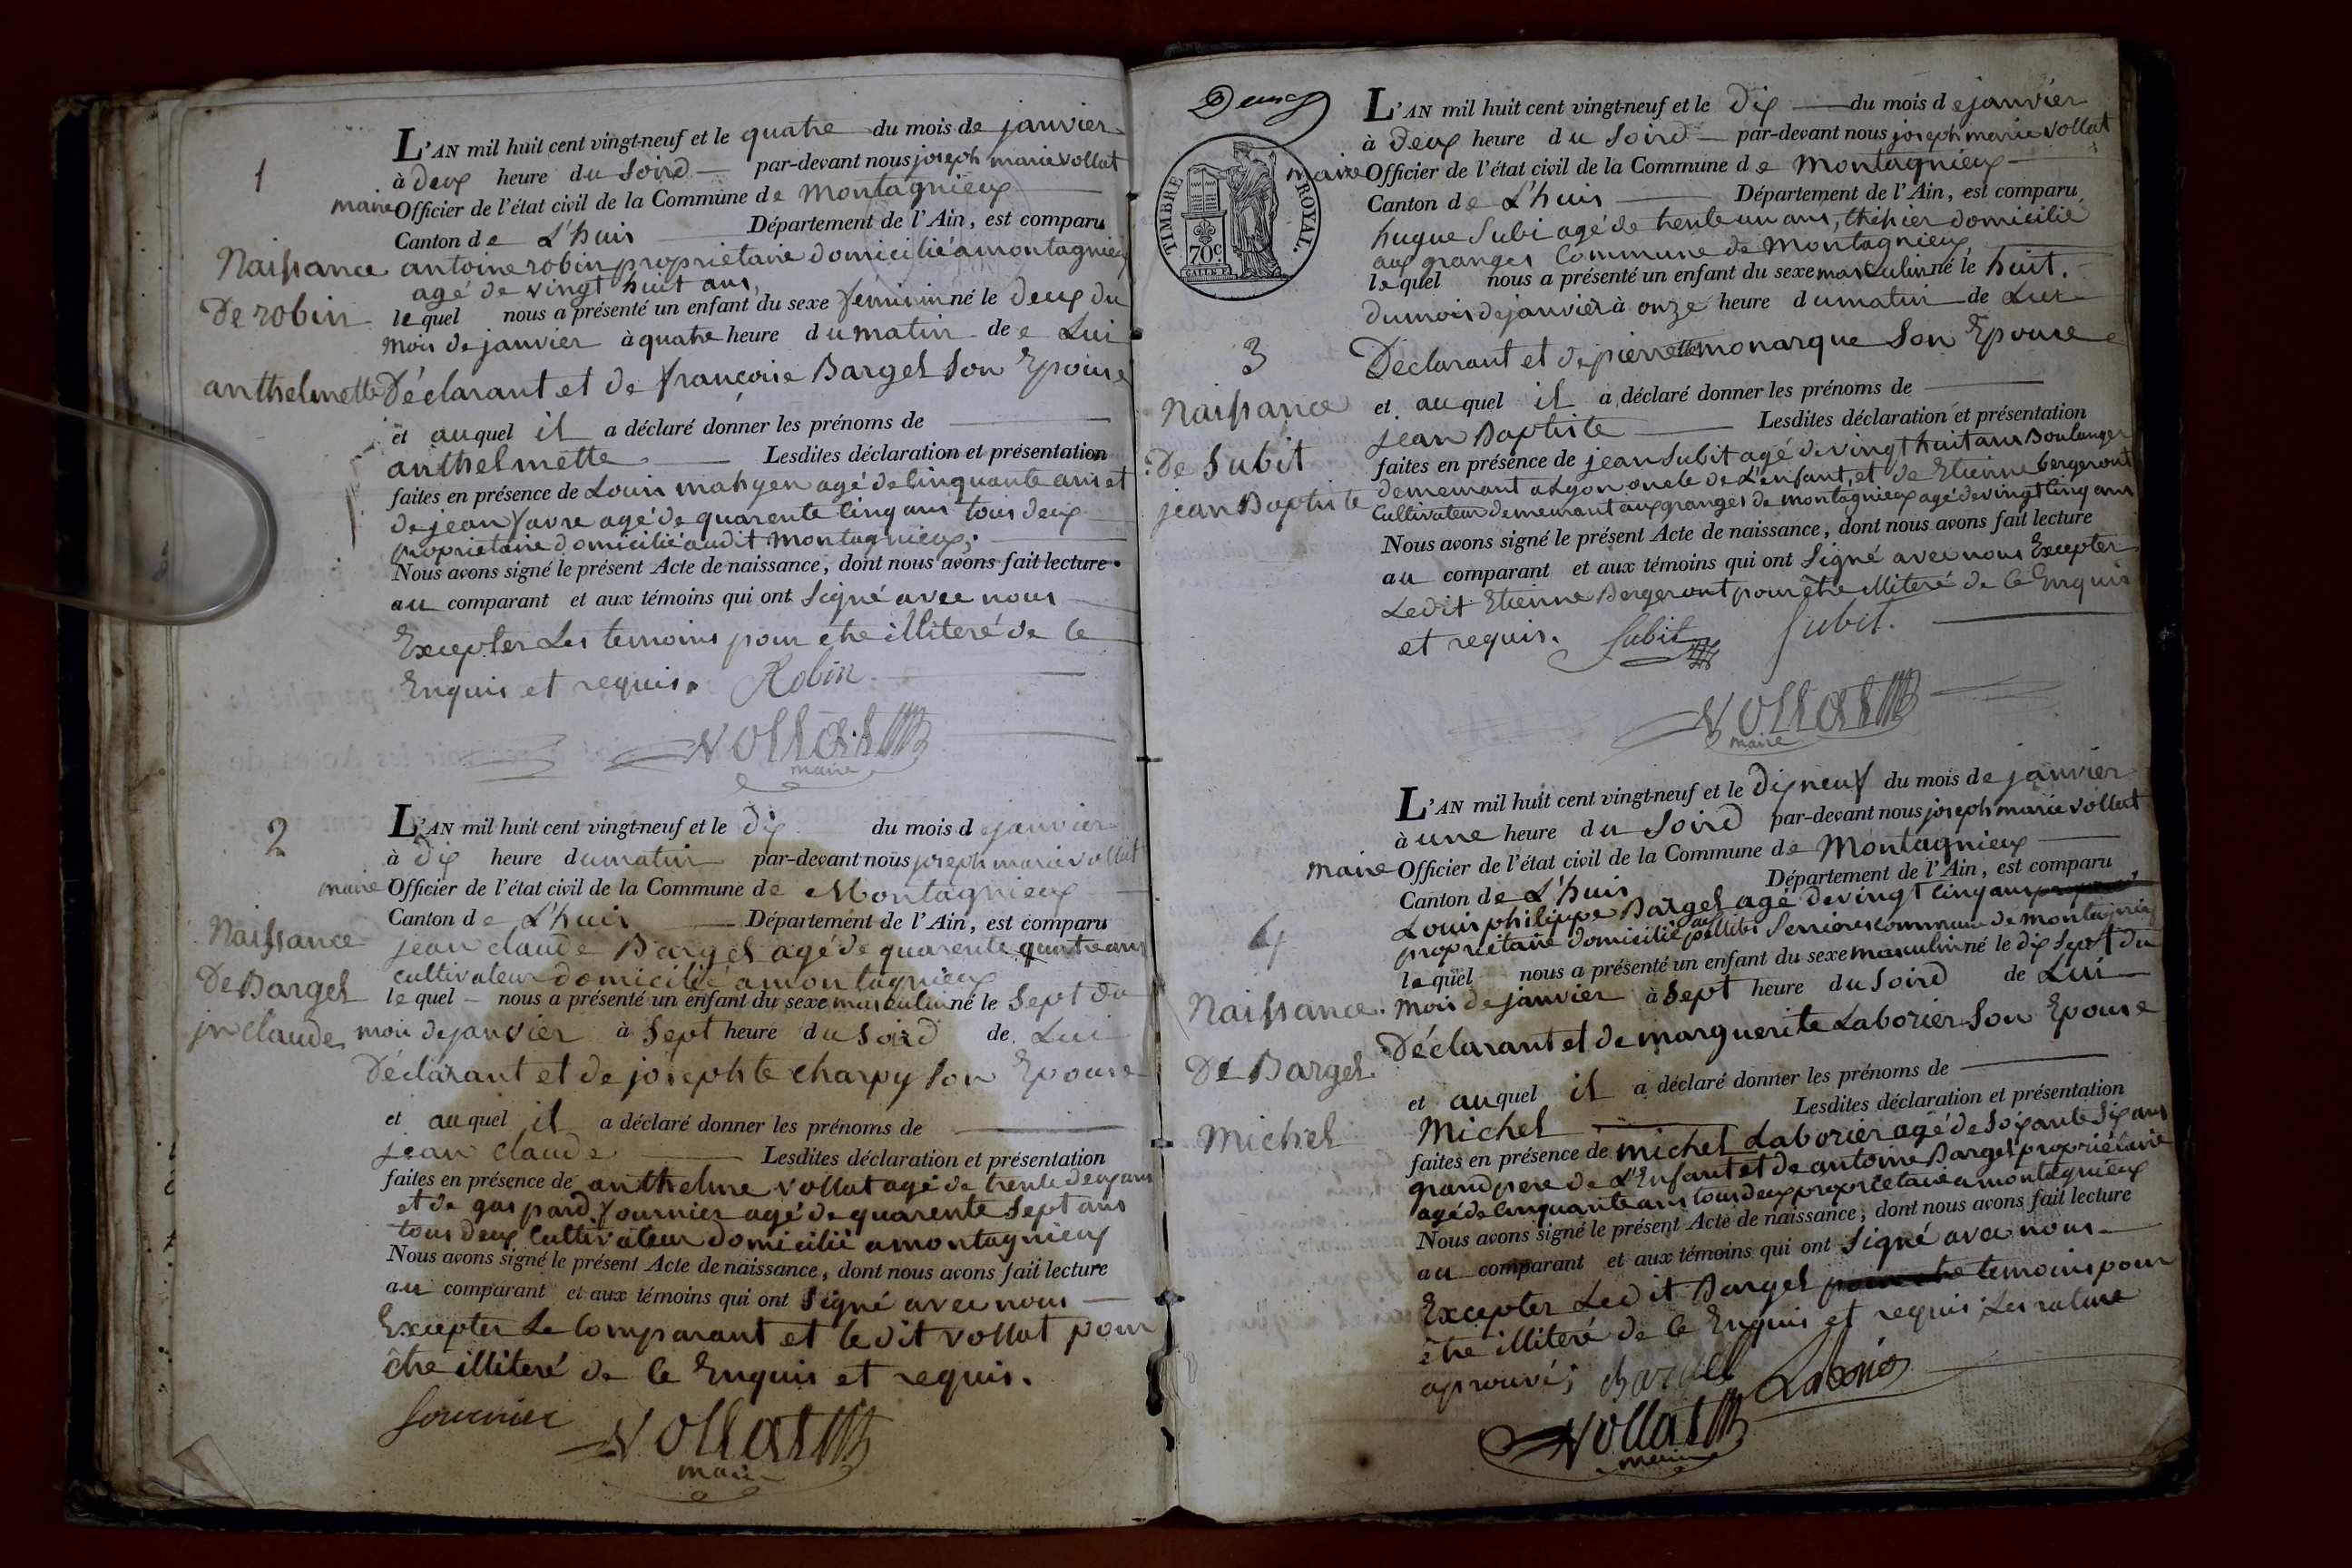 1
L'AN mil huit cent vingt-neuf et le quatre du mois de janvier
à deux heure du soird par-devant nous joseph marie vollat
maire Officier de l'état civil de la Commune de Montagnieux
Canton de L'huis Département de l'Ain, est comparu
Naissance
De robin
anthelmette
antoine robin propriétaire domicilié à montagnieux
agé de vingt huit ans,
lequel nous a présenté un enfant du sexe féminin né le deux du
mois de janvier à quatre heure du matin de e Lui
Déclarant et de françoise Bargel son Epouse
et auquel il a déclaré donner les prénoms de
anthelmette Lesdites déclaration et présentation
faites en présence de Louis mahyen agé de Cinquante ans et
de jean favre agé de quarente cinq ans tous deux
propriétaire domicilié audit montagnieux;
Nous avons signé le présent Acte de naissance, dont nous avons fait lecture
au comparant et aux témoins qui ont signé avec nous
Excepter Les temoins pour etre illiteré de ce
Enquis et requis. Robin
vollat
maire
2
L'AN mil huit cent vingt-neuf et le dix du mois d janvier
à dix heure du matin par-devant nous joseph marie vollat
maire Officier de l'état civil de la Commune de Montagnieux
Canton de L'huis Département de l'Ain, est comparu
Naissance
De Bargel
jn claude
jean claude Bargel agé de quarente quatre ans
cultivateur domicilié a montagnieux
lequel nous a présenté un enfant du sexe masculin né le sept du
mois de janvier à sept heure du soird de Lui
Déclarant et de josephte charpy son Epouse
et auquel il a déclaré donner les prénoms de
jean claude Lesdites déclaration et présentation
faites en présence de anthelme vollat agé de trente deux ans
et de gaspard fournier agé de quarente sept ans
tous deux cultivateur domicilié a montagnieux
Nous avons signé le présent Acte de naissance, dont nous avons fait lecture
au comparant et aux témoins qui ont signé avec nous
Excepter Le Comparant et ledit vollat pour
être illiteré de ce Enquis et requis.
fournier vollat
maire
TIMBRE ROYAL.
70c
L'AN mil huit cent vingt-neuf et le dix du mois de janvier
à deux heure du soird par-devant nous joseph marie vollat
maire Officier de l'état civil de la Commune de Montagnieux
Canton de L'huis Département de l'Ain, est comparu
hugue Subi agé de trente un ans, domicilié
aux granges Commune de Montagnieux,
lequel nous a présenté un enfant du sexe masculin né le huit.
du mois de janvier à onze heure du matin de Lui
3
Naissance
De Subit
jean Baptiste
Déclarant et de pierrette monarque son Epouse
et auquel il a déclaré donner les prénoms de
jean Baptiste Lesdites déclaration et présentation
faites en présence de jean Subit agé de vingt huit ans Boulanger
demeurant a Lyon oncle de L'enfant, et de Etienne bergeront
Cultivateur demeurant aux granges de montagnieux agé de vingt cinq ans
Nous avons signé le présent Acte de naissance, dont nous avons fait lecture
au comparant et aux témoins qui ont signé avec nous Excepter
Ledit Etienne Bergeront pour être illiteré de ce Enquis
et requis. Subit Subit.
vollat
maire
L'AN mil huit cent vingt-neuf et le dix neuf du mois de janvier
à une heure du soird par-devant nous joseph marie vollat
maire Officier de l'état civil de la Commune de Montagnieux
Canton de L'huis Département de l'Ain, est comparu
4
Naissance.
De Bargel
Michel
Louis philippe Bargel agé de vingt cinq ans
propriétaire domicilié commune de montagnieux
lequel nous a présenté un enfant du sexe masculin né le dix sept du
mois de janvier à sept heure du soird de Lui
Déclarant et de marguerite Laborier son Epouse
et auquel il a déclaré donner les prénoms de
Michel Lesdites déclaration et présentation
faites en présence de michel Laborier agé de soixante six ans
grand pere de L'Enfant et de antoine Bargel propriétaire
agé de cinquante ans tous deux propriétaire a montagnieux
Nous avons signé le présent Acte de naissance, dont nous avons fait lecture
au comparant et aux témoins qui ont signé avec nous
Excepter Ledit Bargel temoins pour
être illiteré de ce Enquis et requis Les rature
aprouvé; Laborier
vollat
maire